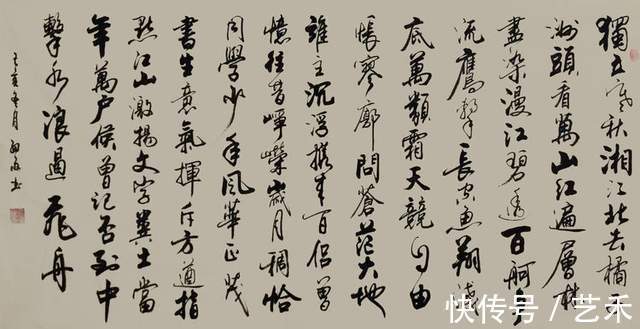 獨立寒秋湘江北去橘子
洲頭看萬山紅遍層林
盡染漫江碧透百舸争
流鷹擊長空魚翔淺
底萬類霜天競自由
悵寥廓問蒼茫大地
誰主沉浮攜來百侣曾
憶往昔崢嶸歲月稠恰
同學少年風華正茂
書生意氣揮斥方遒指
點江山激揚文字糞土當
年萬户侯曾記否到中
擊水浪遏飛舟
己亥冬月書
快传号 / 艺禾